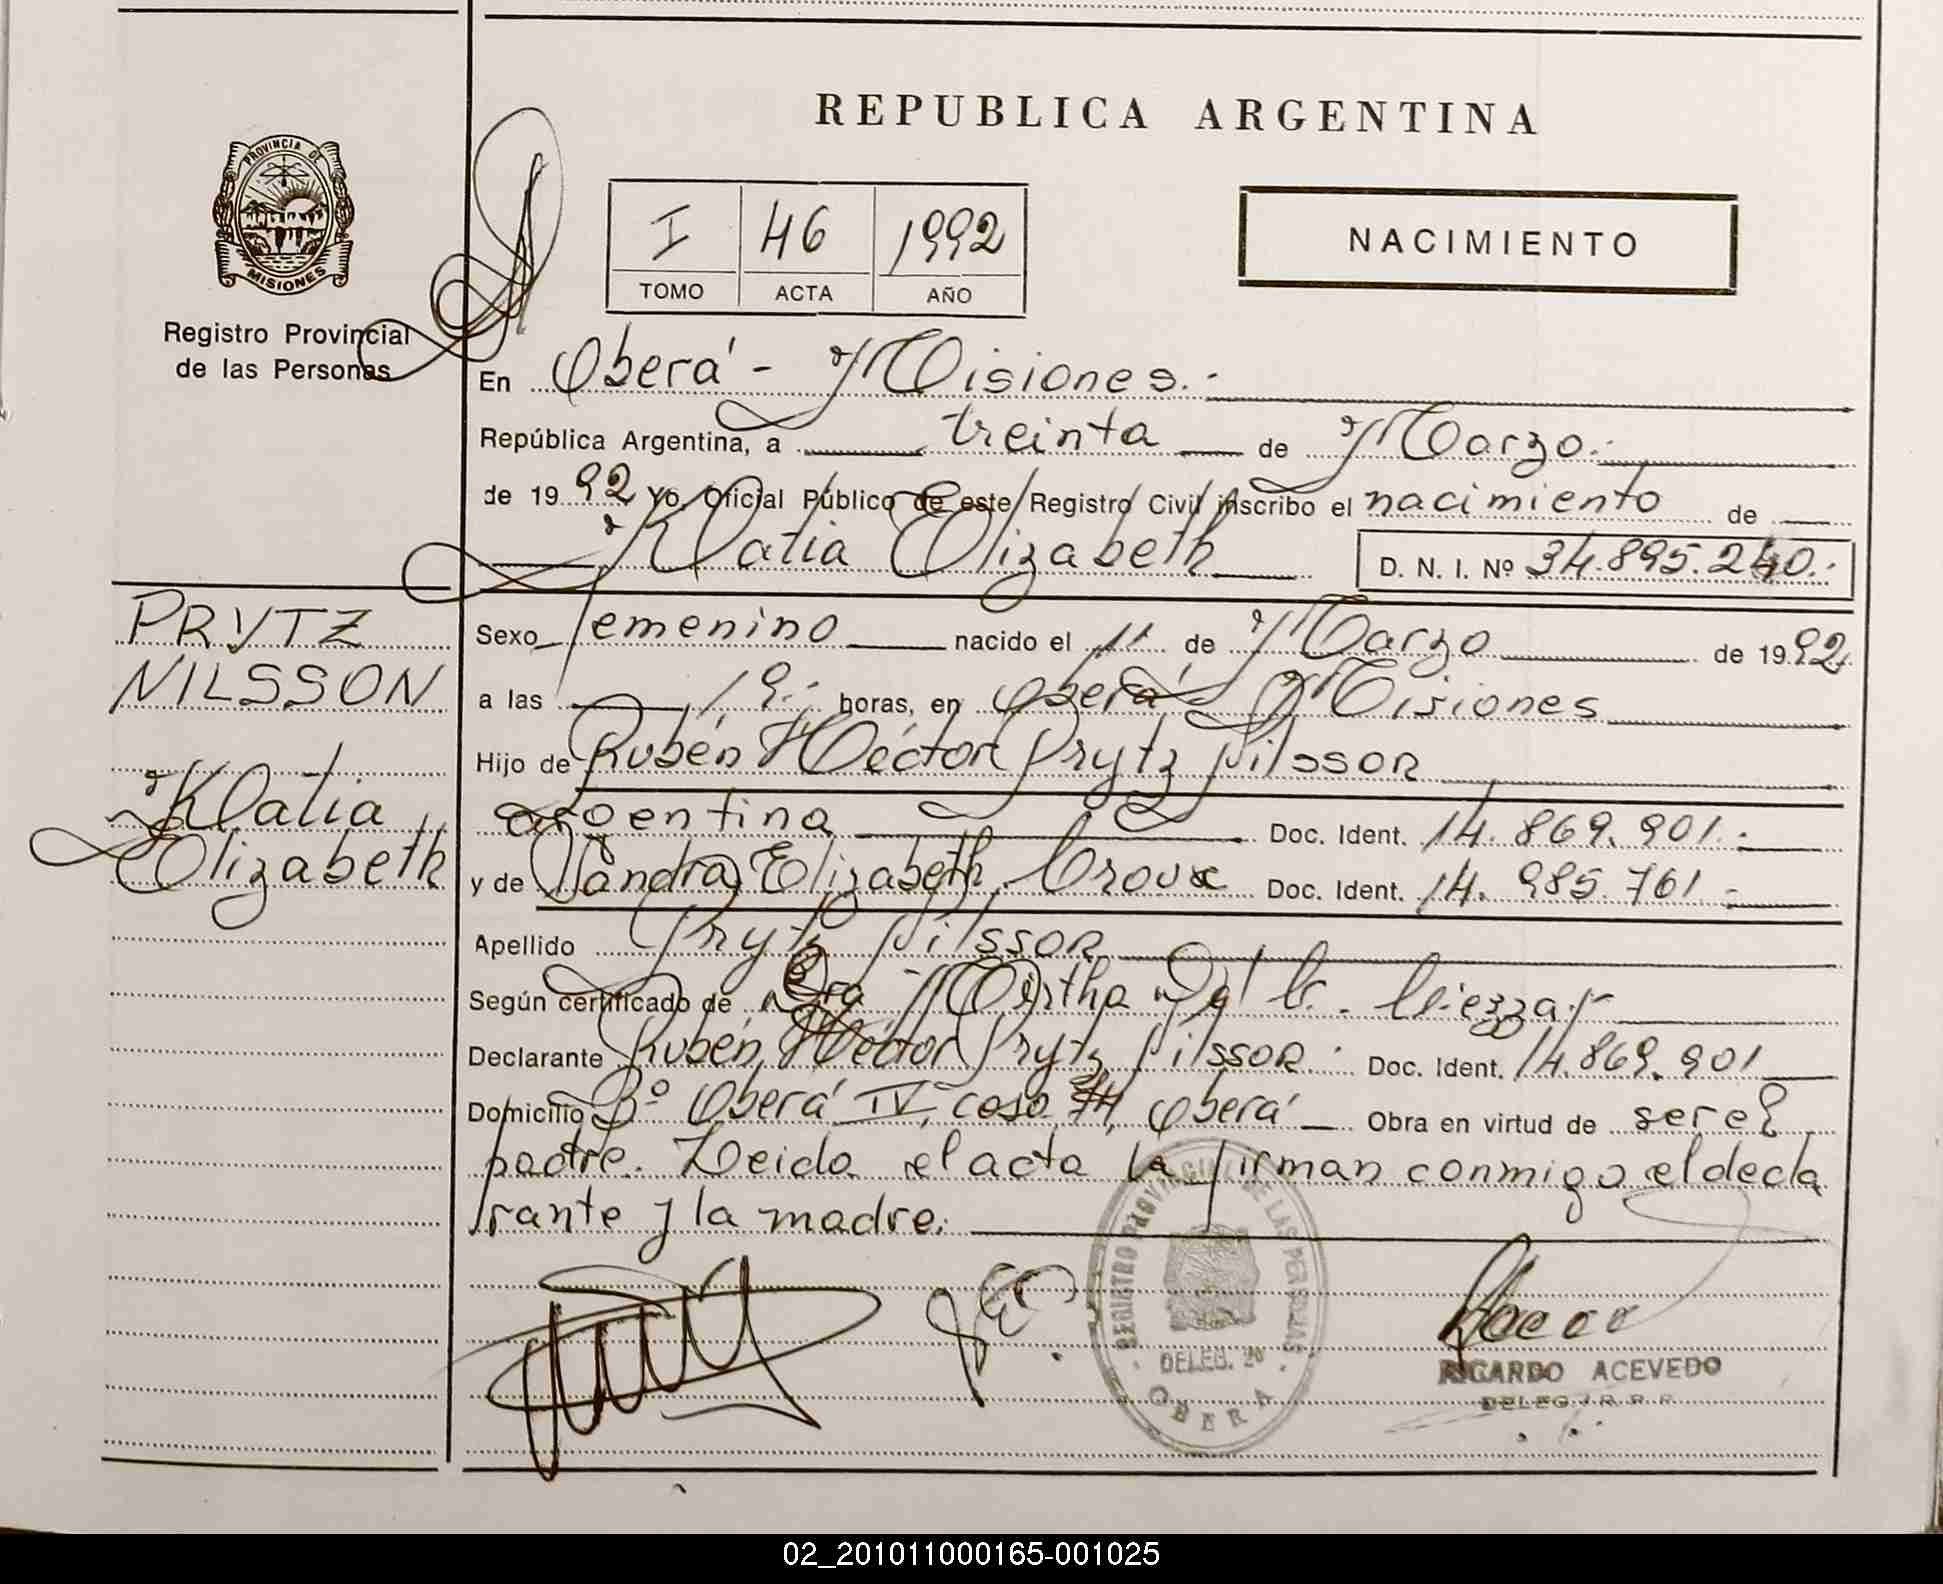 REPUBLICA ARGENTINA
PROVINCIA DE
MISIONES
Registro Provincial
de las Personas
I 46 1992
TOMO ACTA AÑO
NACIMIENTO
En Oberá - Misiones.-
República Argentina, a treinta de Marzo.-
de 1992 Yo, Oficial Público de este Registro Civil inscribo el nacimiento de
Katia Elizabeth D. N. I. Nº 34.895.240.-
PRYTZ
NILSSON
Katia
Elizabeth
Sexo femenino nacido el 11 de Marzo de 1992
a las 19.- horas, en Oberá Misiones
Hijo de Rubén Héctor Prytz Nilsson
argentina Doc. Ident. 14.869.901.-
y de Sandra Elizabeth Doc. Ident. 14.985.761.-
Apellido Prytz Nilsson
Según certificado de Dra Mirtha
Declarante Rubén Héctor Prytz Nilsson.- Doc. Ident. 14.869.901
Domicilio Bº Oberá IV, casa Oberá Obra en virtud de ser el
padre. Leida el acta la firman conmigo el decla
rante y la madre.
REGISTRO PROVINCIAL DE LAS PERSONAS
DELEG. 20
OBERA
RICARDO ACEVEDO
DELEG. R. P. P.
02_201011000165-001025